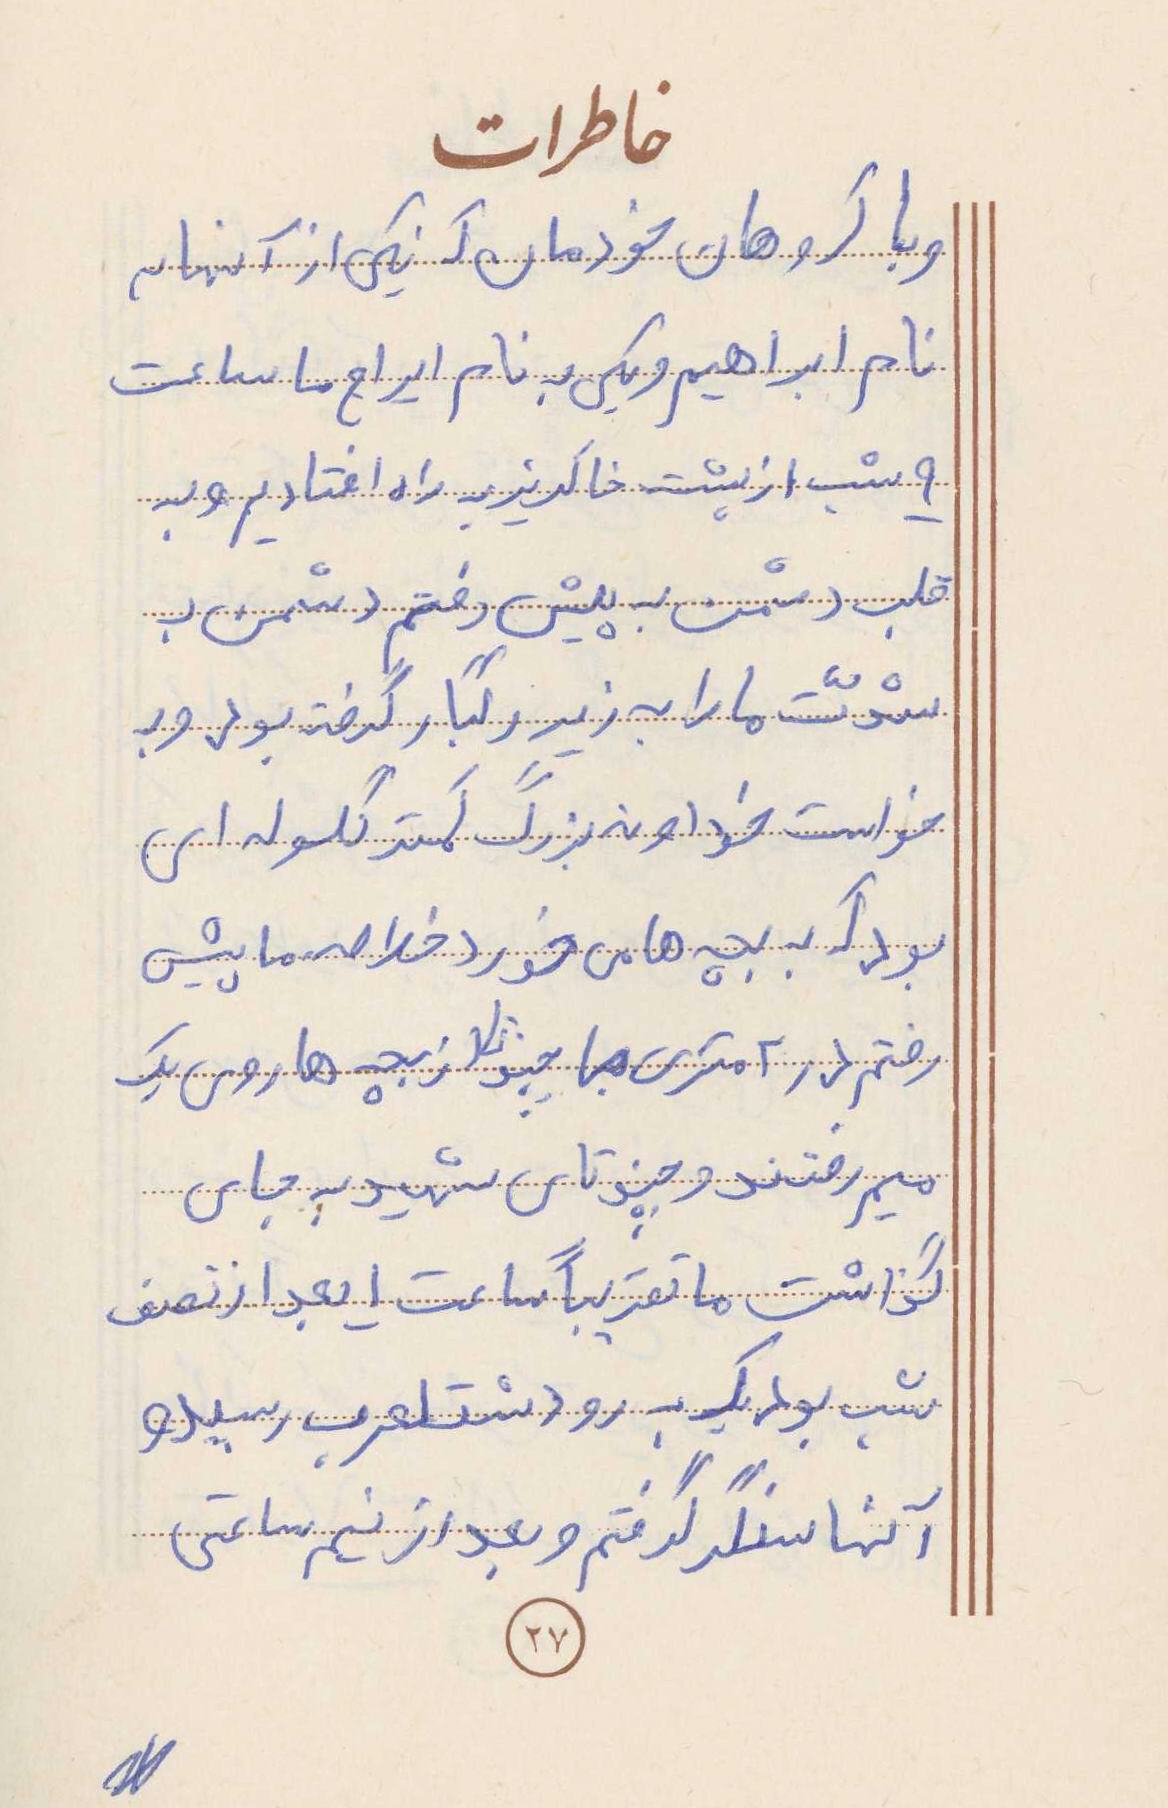 خاطرات
وبا گروهان خودمان که یکی از آنها به
نام ابراهیم ویکی به نام ایراج ما ساعت
۹ شب از پشت خاکریز به راه افتادیم و به
قلب دشمن به پیش رفتم دشمن به
شدّت ما را به زیر رگبار گرفته بود و به
خواست خداوند بزرگ کمتر گلوله ای
بود که به بچه ها می خورد خلاصه ما پیش
رفتم در ۲ متری ما چندتا از بچه ها روی یک
میم رفتند و چند تای شهید به جای
گذاشت ما تقریباً ساعت ۱ بعد از نصف
شب بود که به رود شتلعرب رسید و
آنها سنگر گرفتم و بعد از نیم ساعتی
۲۷